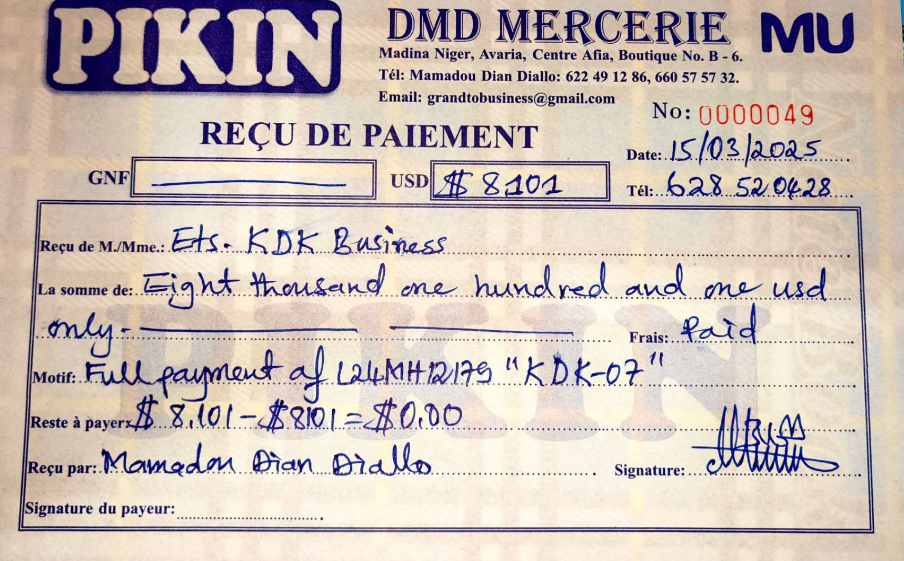 PIKIN
DMD MERCERIE
MU
Madina Niger, Avaria, Centre Afia, Boutique No. B - 6.
Tél: Mamadou Dian Diallo: 622 49 12 86, 660 57 57 32.
Email: grandtobusiness@gmail.com
No: 0000049
REÇU DE PAIEMENT
Date: 15/03/2025
GNF
USD $ 8101
Tél: 628 52 04 28
Reçu de M./Mme.: Ets. KDK Business
La somme de: Eight thousand one hundred and one usd
only-
Frais: Paid
Motif: Full payment of L24MH12179 "KDK-07"
Reste à payer: $ 8.101 - $8101 = $0.00
Reçu par: Mamadou Dian Diallo
Signature:
Signature du payeur:
PIKIN